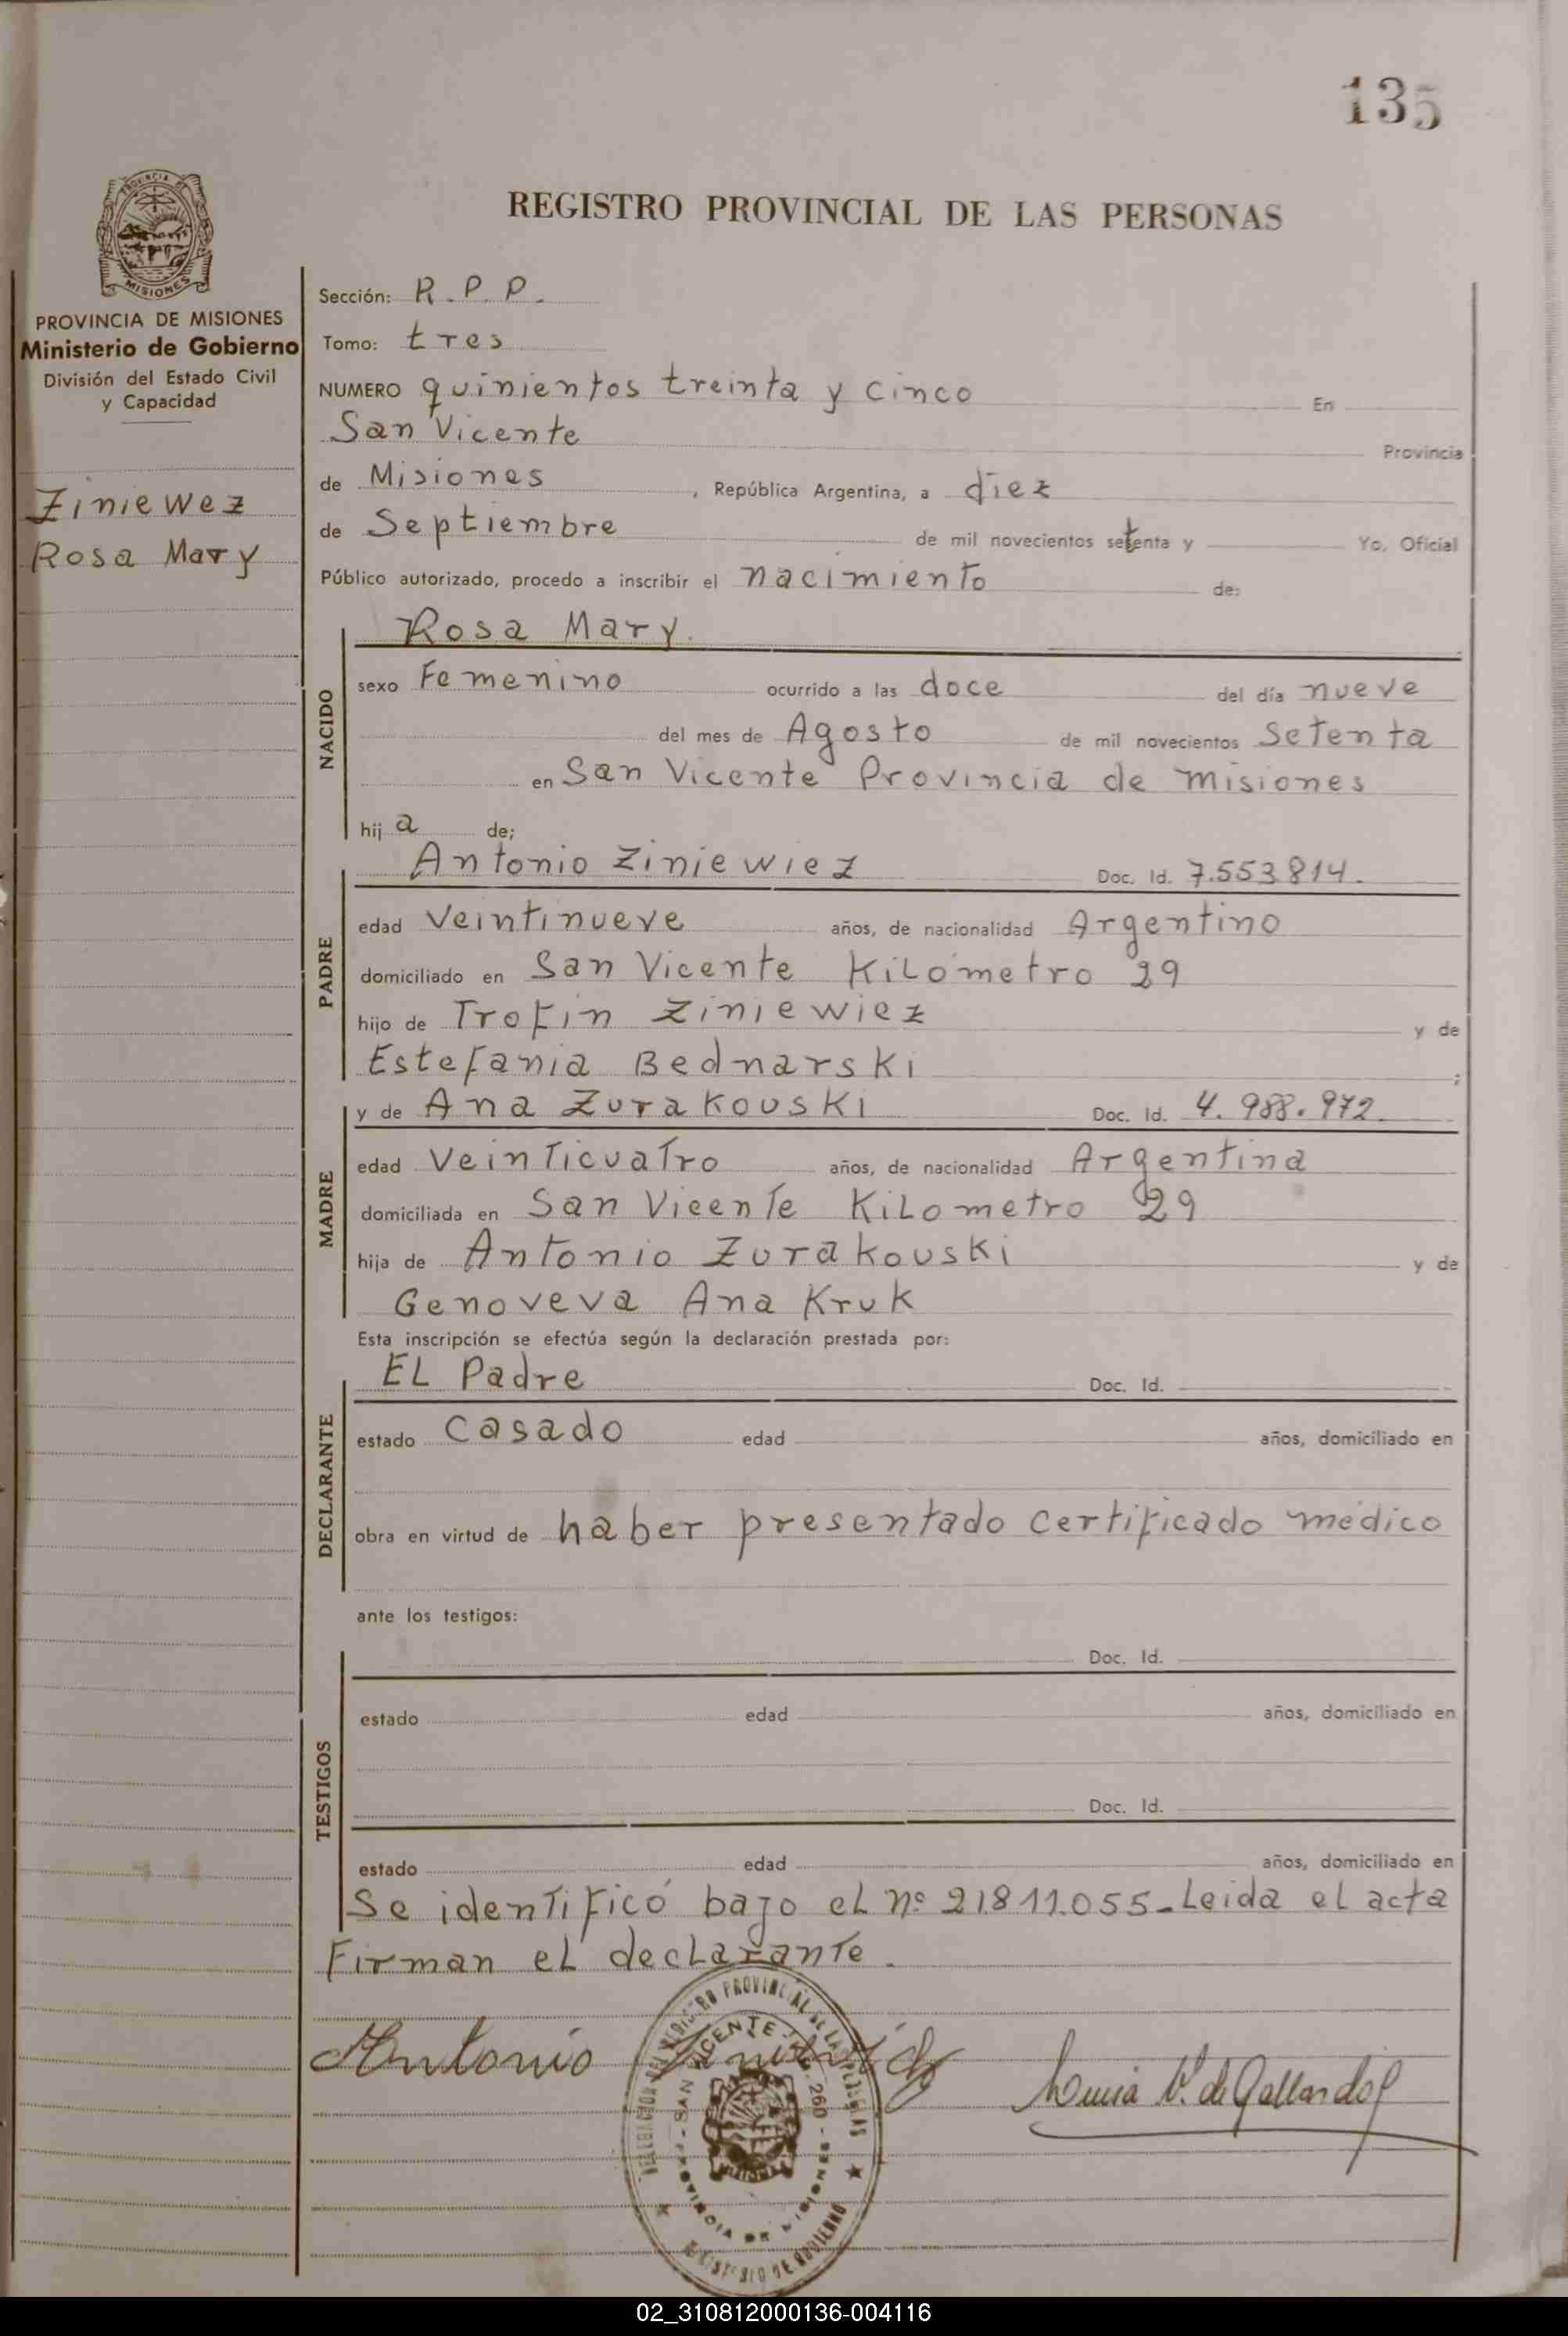 135
REGISTRO PROVINCIAL DE LAS PERSONAS
PROVINCIA DE MISIONES
Ministerio de Gobierno
División del Estado Civil
y Capacidad
Ziniewez
Rosa Mary
Sección: R.P.P.
Tomo: tres
NUMERO quinientos treinta y cinco En
San Vicente Provincia
de Misiones, República Argentina, a diez
de Septiembre de mil novecientos setenta y Yo, Oficial
Público autorizado, procedo a inscribir el nacimiento de:
NACIDO
Rosa Mary.
sexo Femenino ocurrido a las doce del día nueve
del mes de Agosto de mil novecientos setenta
en San Vicente Provincia de Misiones
hij a de;
PADRE
Antonio Ziniewiez Doc. Id. 7.553.814.
edad Veintinueve años, de nacionalidad Argentino
domiciliado en San Vicente Kilómetro 29
hijo de Trofin Ziniewiez y de
Estefania Bednarski ;
MADRE
y de Ana Zurakouski Doc. Id. 4.988.972.
edad Veinticuatro años, de nacionalidad Argentina
domiciliada en San Vicente Kilometro 29
hija de Antonio Zurakouski y de
Genoveva Ana Kruk
Esta inscripción se efectúa según la declaración prestada por:
DECLARANTE
EL Padre Doc. Id.
estado Casado edad años, domiciliado en
obra en virtud de haber presentado certificado médico
ante los testigos:
TESTIGOS
Doc. Id.
estado edad años, domiciliado en
Doc. Id.
estado edad años, domiciliado en
Se identificó bajo el nº 21.811.055-Leida el acta
Firman el declarante.
Antonio
de Gallardo
02_310812000136-004116